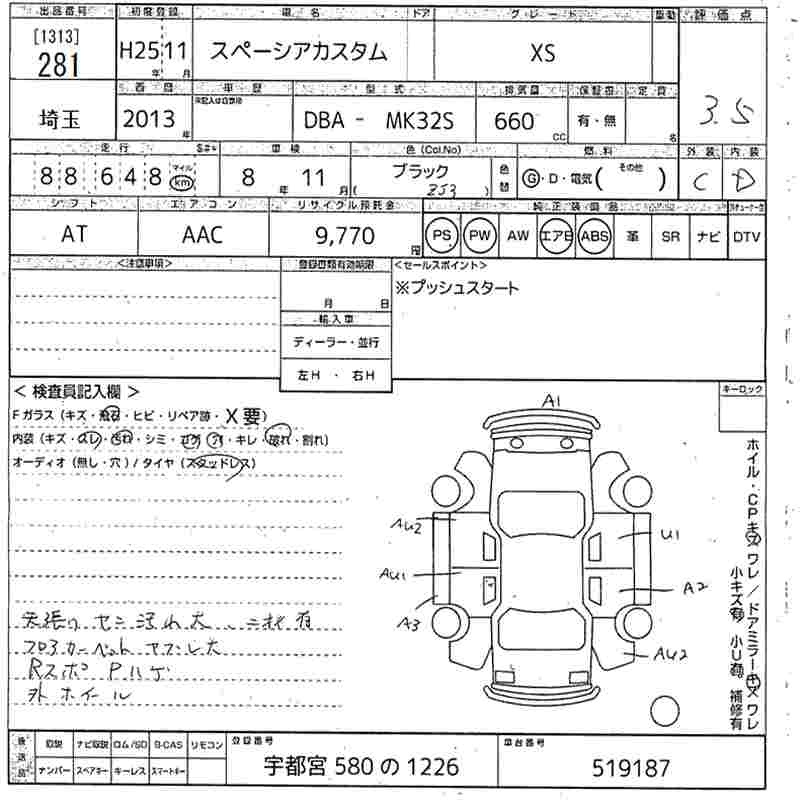 出品番号 初度登録 車名 ドア グレード 車動 評価点
[1313]
281 H25 11 スペーシアカスタム XS
年 月
西暦 車歴 型式 排気量 保証書 定員
埼玉 2013 年 DBA - MK32S 660 CC 有・無 名 3.5
走行 車検 色(Col.No) 燃料 外装 内装
88648 マイル km 8年 11月 ブラック ( ZJ3 ) 色替 G・D・電気( その他 ) C D
シフト エアコン リサイクル預託金 純正装備品
AT AAC 9,770 円 PS PW AW エアB ABS 革 SR ナビ DTV
<注意事項> 登録書類有効期限 <セールスポイント>
※プッシュスタート
月 日
輸入車
ディーラー・並行
左H ・ 右H
< 検査員記入欄 > キーロック
Fガラス (キズ・飛石・ヒビ・リペア跡・X要)
内装 (キズ・スレ・汚れ・シミ・コゲ・穴・キレ・破れ・割れ)
オーディオ (無し・穴) / タイヤ (スタッドレス)
A1
AU2
U1
AU1
A2
A3
AU2
ホイル・CPキズ ワレ / ドアミラーキズ ワレ
小キズ有 小U有 補修有
天張り ヤニ汚れ大
フロアカーペット ヤブレ大
Rスポ Pハゲ
外 ホイール
後送品 取説 ナビ取説 ロム/SD B-CAS リモコン 登録番号 車台番号
ナンバー スペアキー キーレス スマートキー 宇都宮 580 の 1226 519187